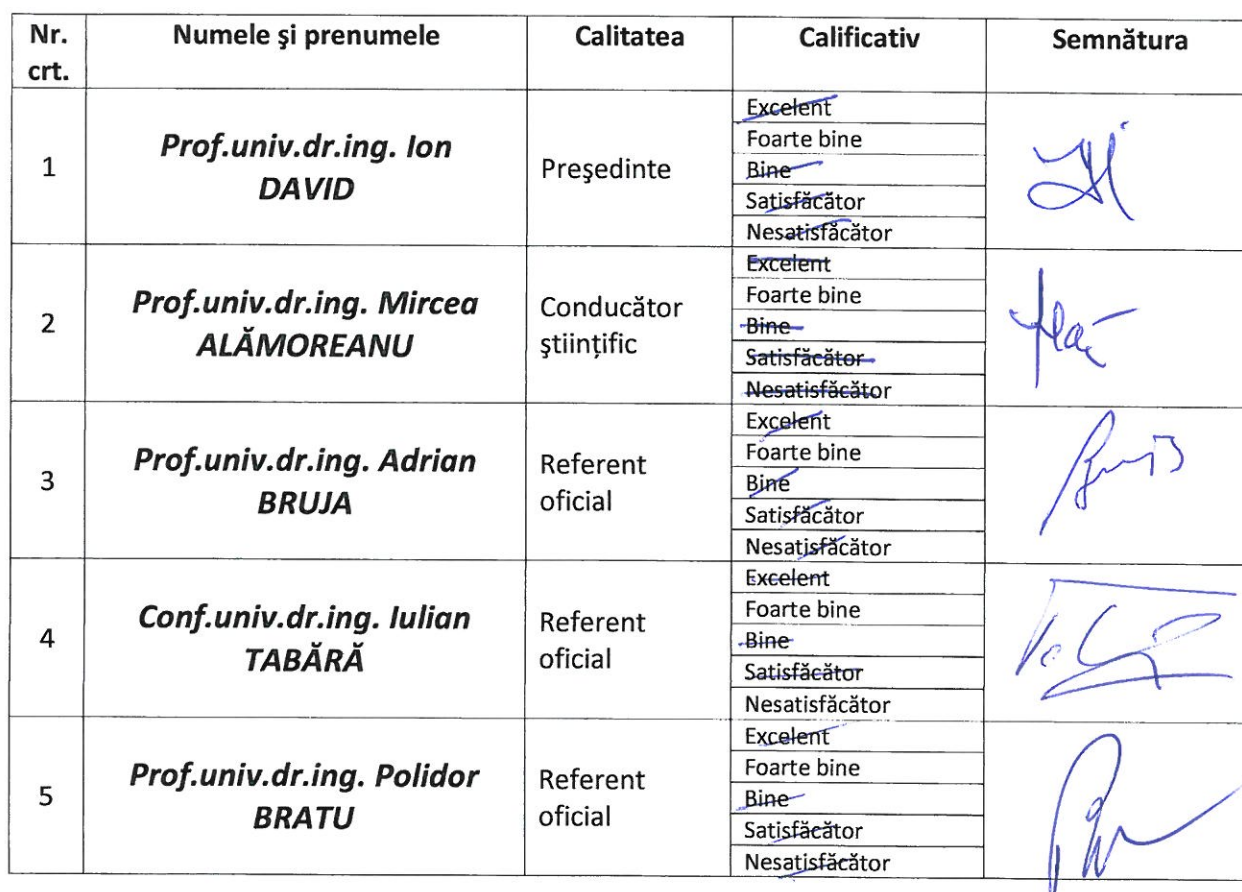 Nr. crt. Numele și prenumele Calitatea Calificativ Semnătura
1 Prof.univ.dr.ing. Ion DAVID Președinte
Excelent
Foarte bine
Bine
Satisfăcător
Nesatisfăcător
2 Prof.univ.dr.ing. Mircea ALĂMOREANU Conducător științific
Excelent
Foarte bine
Bine
Satisfăcător
Nesatisfăcător
3 Prof.univ.dr.ing. Adrian BRUJA Referent oficial
Excelent
Foarte bine
Bine
Satisfăcător
Nesatisfăcător
4 Conf.univ.dr.ing. Iulian TABĂRĂ Referent oficial
Excelent
Foarte bine
Bine
Satisfăcător
Nesatisfăcător
5 Prof.univ.dr.ing. Polidor BRATU Referent oficial
Excelent
Foarte bine
Bine
Satisfăcător
Nesatisfăcător